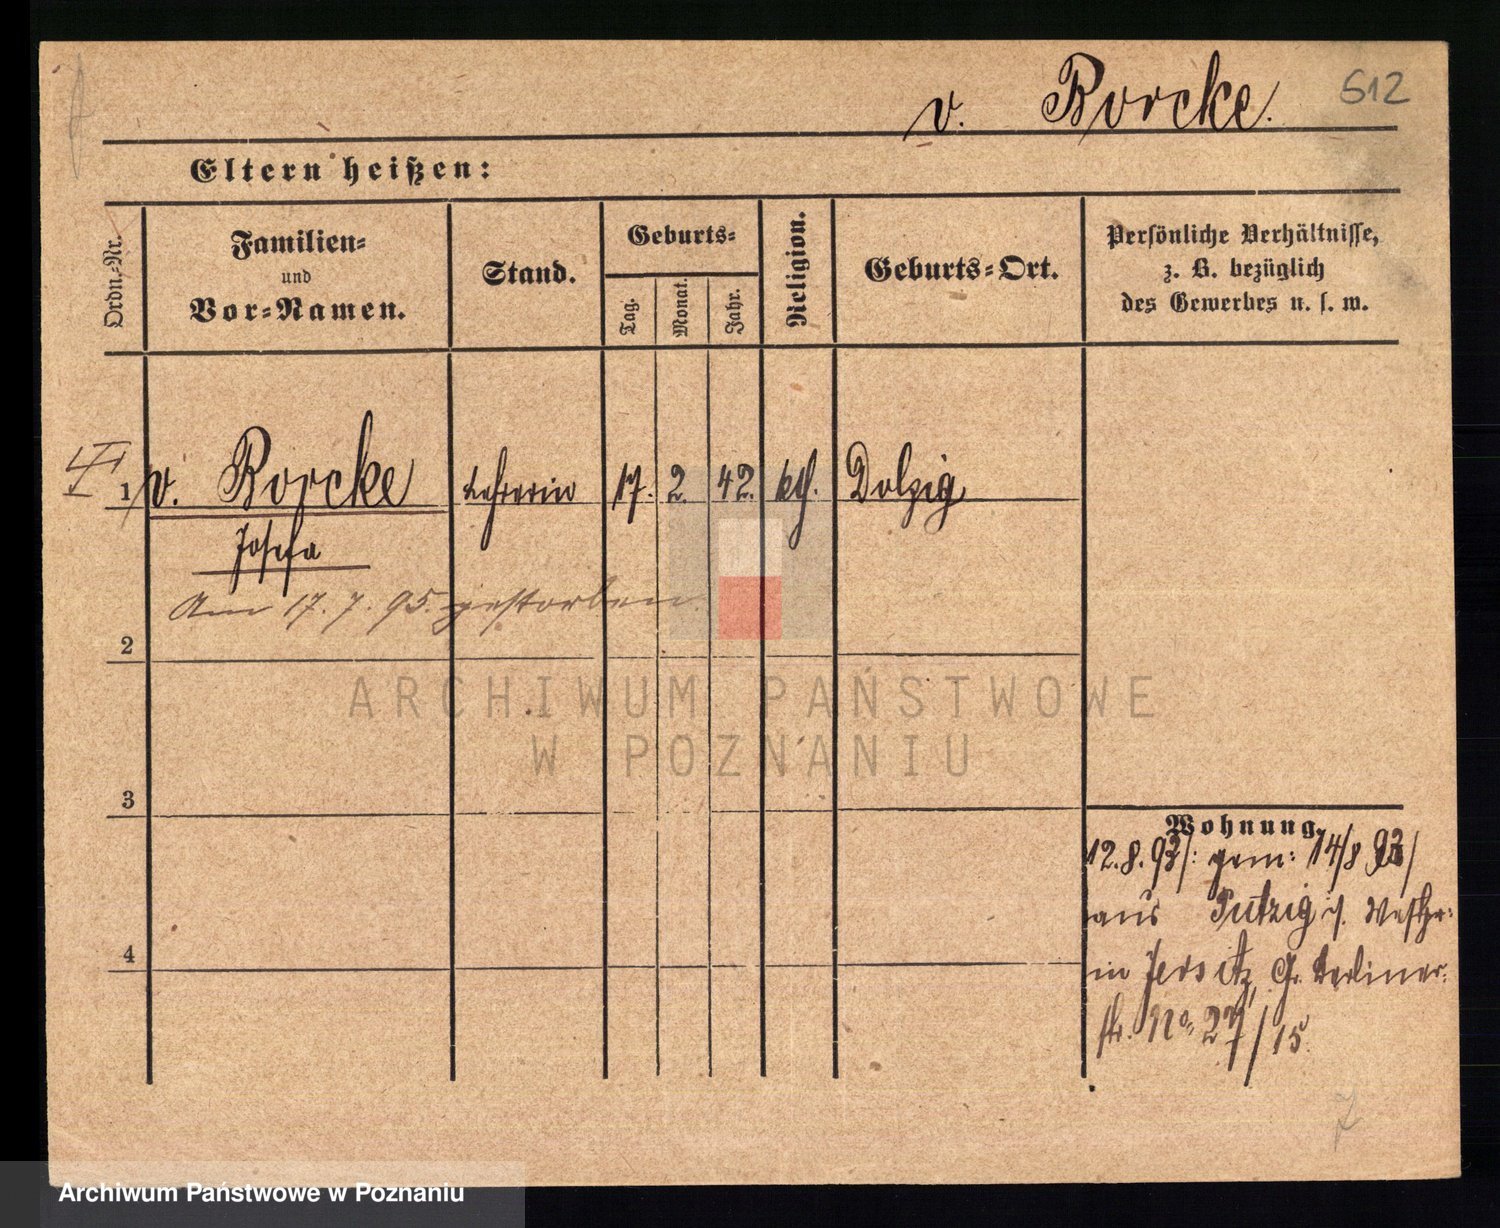 v. Borcke. 512
Eltern heißen:
Ordn.-Nr.
Familien-
und
Vor-Namen.
Stand.
Geburts-
Tag.
Monat.
Jahr.
Religion.
Geburts-Ort.
Persönliche Verhältnisse,
z. B. bezüglich
des Gewerbes u. s. w.
1 v. Borcke Lehrerin 17. 2. 42. kth. Dolzig
Josefa
Am 17. 7. 95. gestorben.
2
3
4
Wohnung.
12.8.93/: gem: 14/8 93/
aus Putzig i/. Westpr:
in Jersitz, Gr. Berliner:
str. No 27/15.
ARCHIWUM PAŃSTWOWE
W POZNANIU
Archiwum Państwowe w Poznaniu